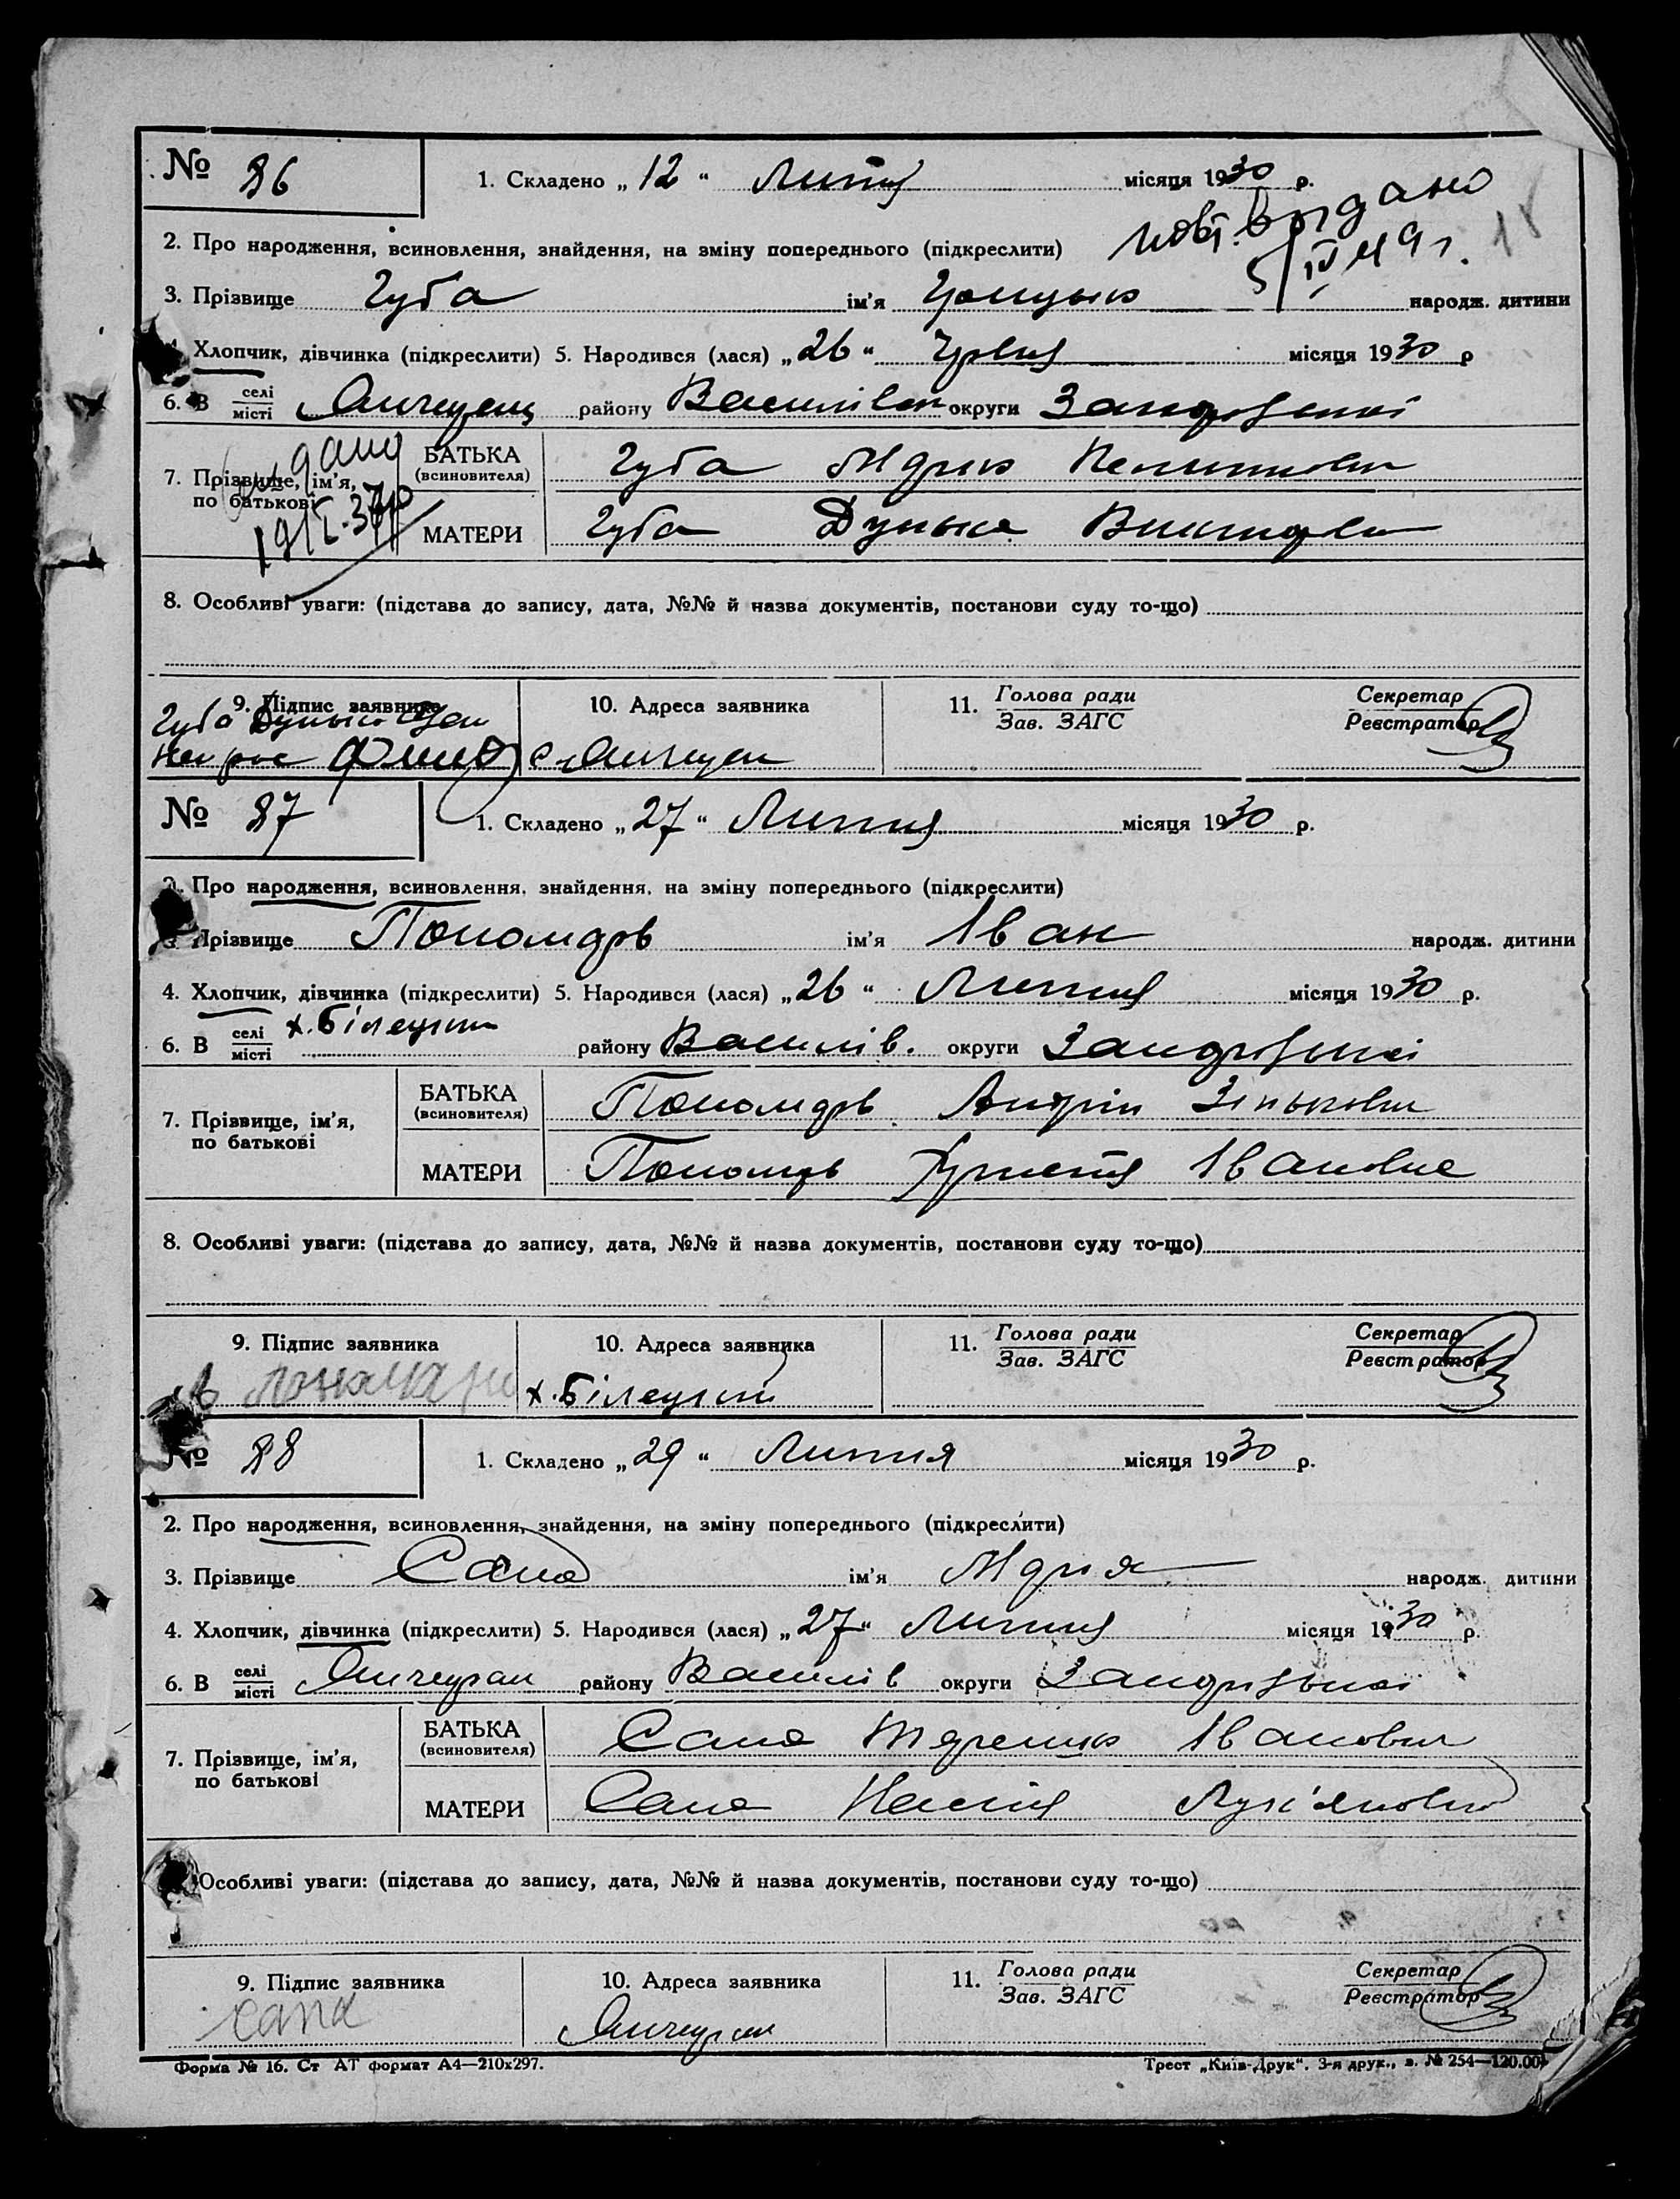 № 86
1. Складено „ 12 “ Липня місяця 1930 р.
2. Про народження, всиновлення, знайдення, на зміну попереднього (підкреслити)
видано
5/IV 49 г.
3. Прізвище Губа ім'я народж. дитини
4. Хлопчик, дівчинка (підкреслити) 5. Народився (лася) „ 26 “ Червня місяця 1930 р
6. В селі/місті району Василівськ округи Запорізької
7. Прізвище, ім'я, по батькові
БАТЬКА (всиновителя) Губа Марко
МАТЕРИ Губа Дунька
19/I-37 р
8. Особливі уваги: (підстава до запису, дата, №№ й назва документів, постанови суду то-що)
9. Підпис заявника
Губа
10. Адреса заявника
11. Голова ради/Зав. ЗАГС
Секретар/Реєстратор
№ 87
1. Складено „ 27 “ Липня місяця 1930 р.
2. Про народження, всиновлення, знайдення, на зміну попереднього (підкреслити)
3. Прізвище Пономарь ім'я Іван народж. дитини
4. Хлопчик, дівчинка (підкреслити) 5. Народився (лася) „ 26 “ Липня місяця 1930 р.
6. В селі/місті району Василів. округи Запорізької
7. Прізвище, ім'я, по батькові
БАТЬКА (всиновителя) Пономарь Андрій Зінькович
МАТЕРИ Пономарь Христя Івановна
8. Особливі уваги: (підстава до запису, дата, №№ й назва документів, постанови суду то-що)
9. Підпис заявника
10. Адреса заявника
11. Голова ради/Зав. ЗАГС
Секретар/Реєстратор
№ 88
1. Складено „ 29 “ Липня місяця 1930 р.
2. Про народження, всиновлення, знайдення, на зміну попереднього (підкреслити)
3. Прізвище Сапа ім'я Марія народж. дитини
4. Хлопчик, дівчинка (підкреслити) 5. Народився (лася) „ 27 “ Липня місяця 1930 р.
6. В селі/місті району Василів округи Запорізької
7. Прізвище, ім'я, по батькові
БАТЬКА (всиновителя) Сапа Терешко Іванович
МАТЕРИ Сапа Настя Лук'яновна
Особливі уваги: (підстава до запису, дата, №№ й назва документів, постанови суду то-що)
9. Підпис заявника
Сапа
10. Адреса заявника
11. Голова ради/Зав. ЗАГС
Секретар/Реєстратор
Форма № 16. Ст АТ формат А4—210х297.
Трест „Київ-Друк“. 3-я друк., з. № 254—120.00